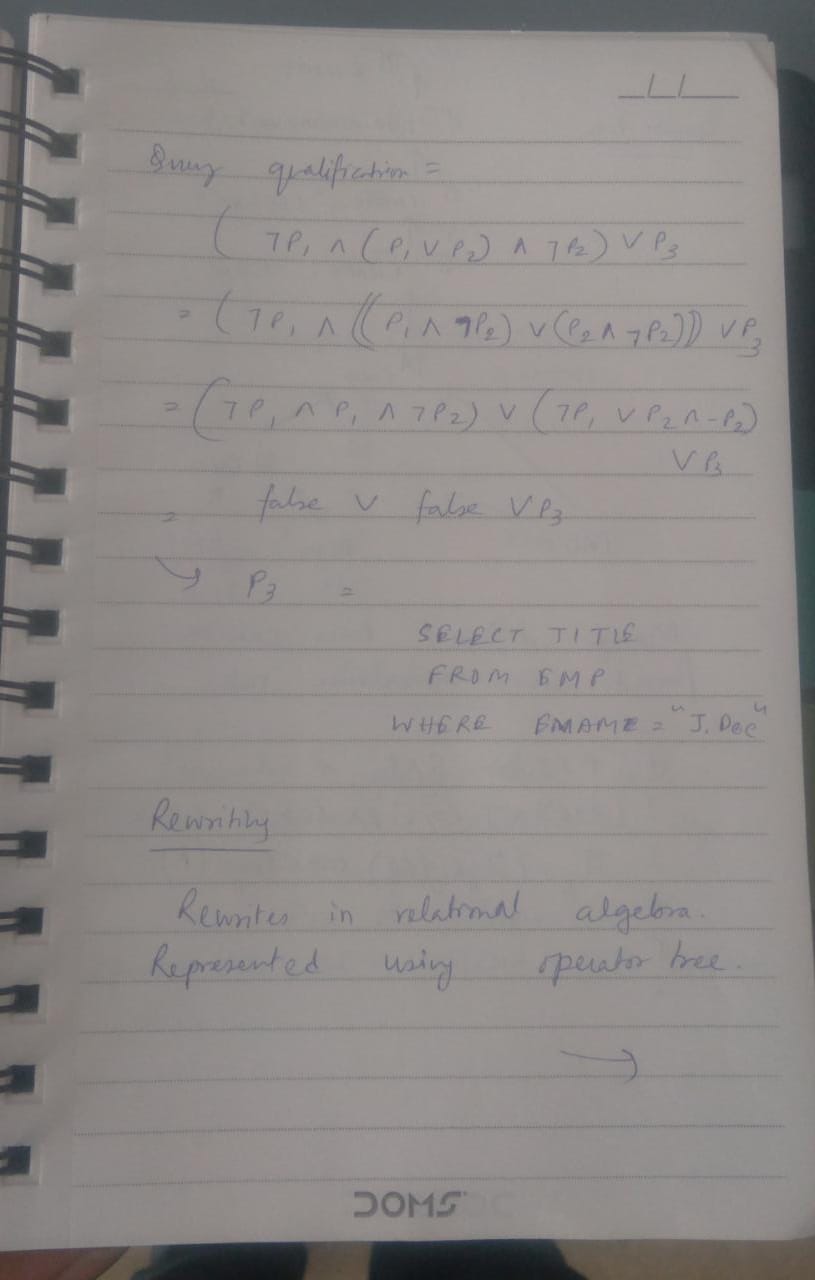 Query qualification =
( ¬P₁ ∧ (P₁ ∨ P₂) ∧ ¬P₂) ∨ P₃
= (¬P₁ ∧ ((P₁ ∧ ¬P₂) ∨ (P₂ ∧ ¬P₂)) ∨ P₃
= (¬P₁ ∧ P₁ ∧ ¬P₂) ∨ (¬P₁ ∨ P₂ ∧ -P₂)
∨ P₃
= false ∨ false ∨ P₃
↪ P₃ =
SELECT TITLE
FROM EMP
WHERE EMAME = "J. Doe"
Rewriting
Rewrites in relational algebra.
Represented using operator tree.
→
DOMS